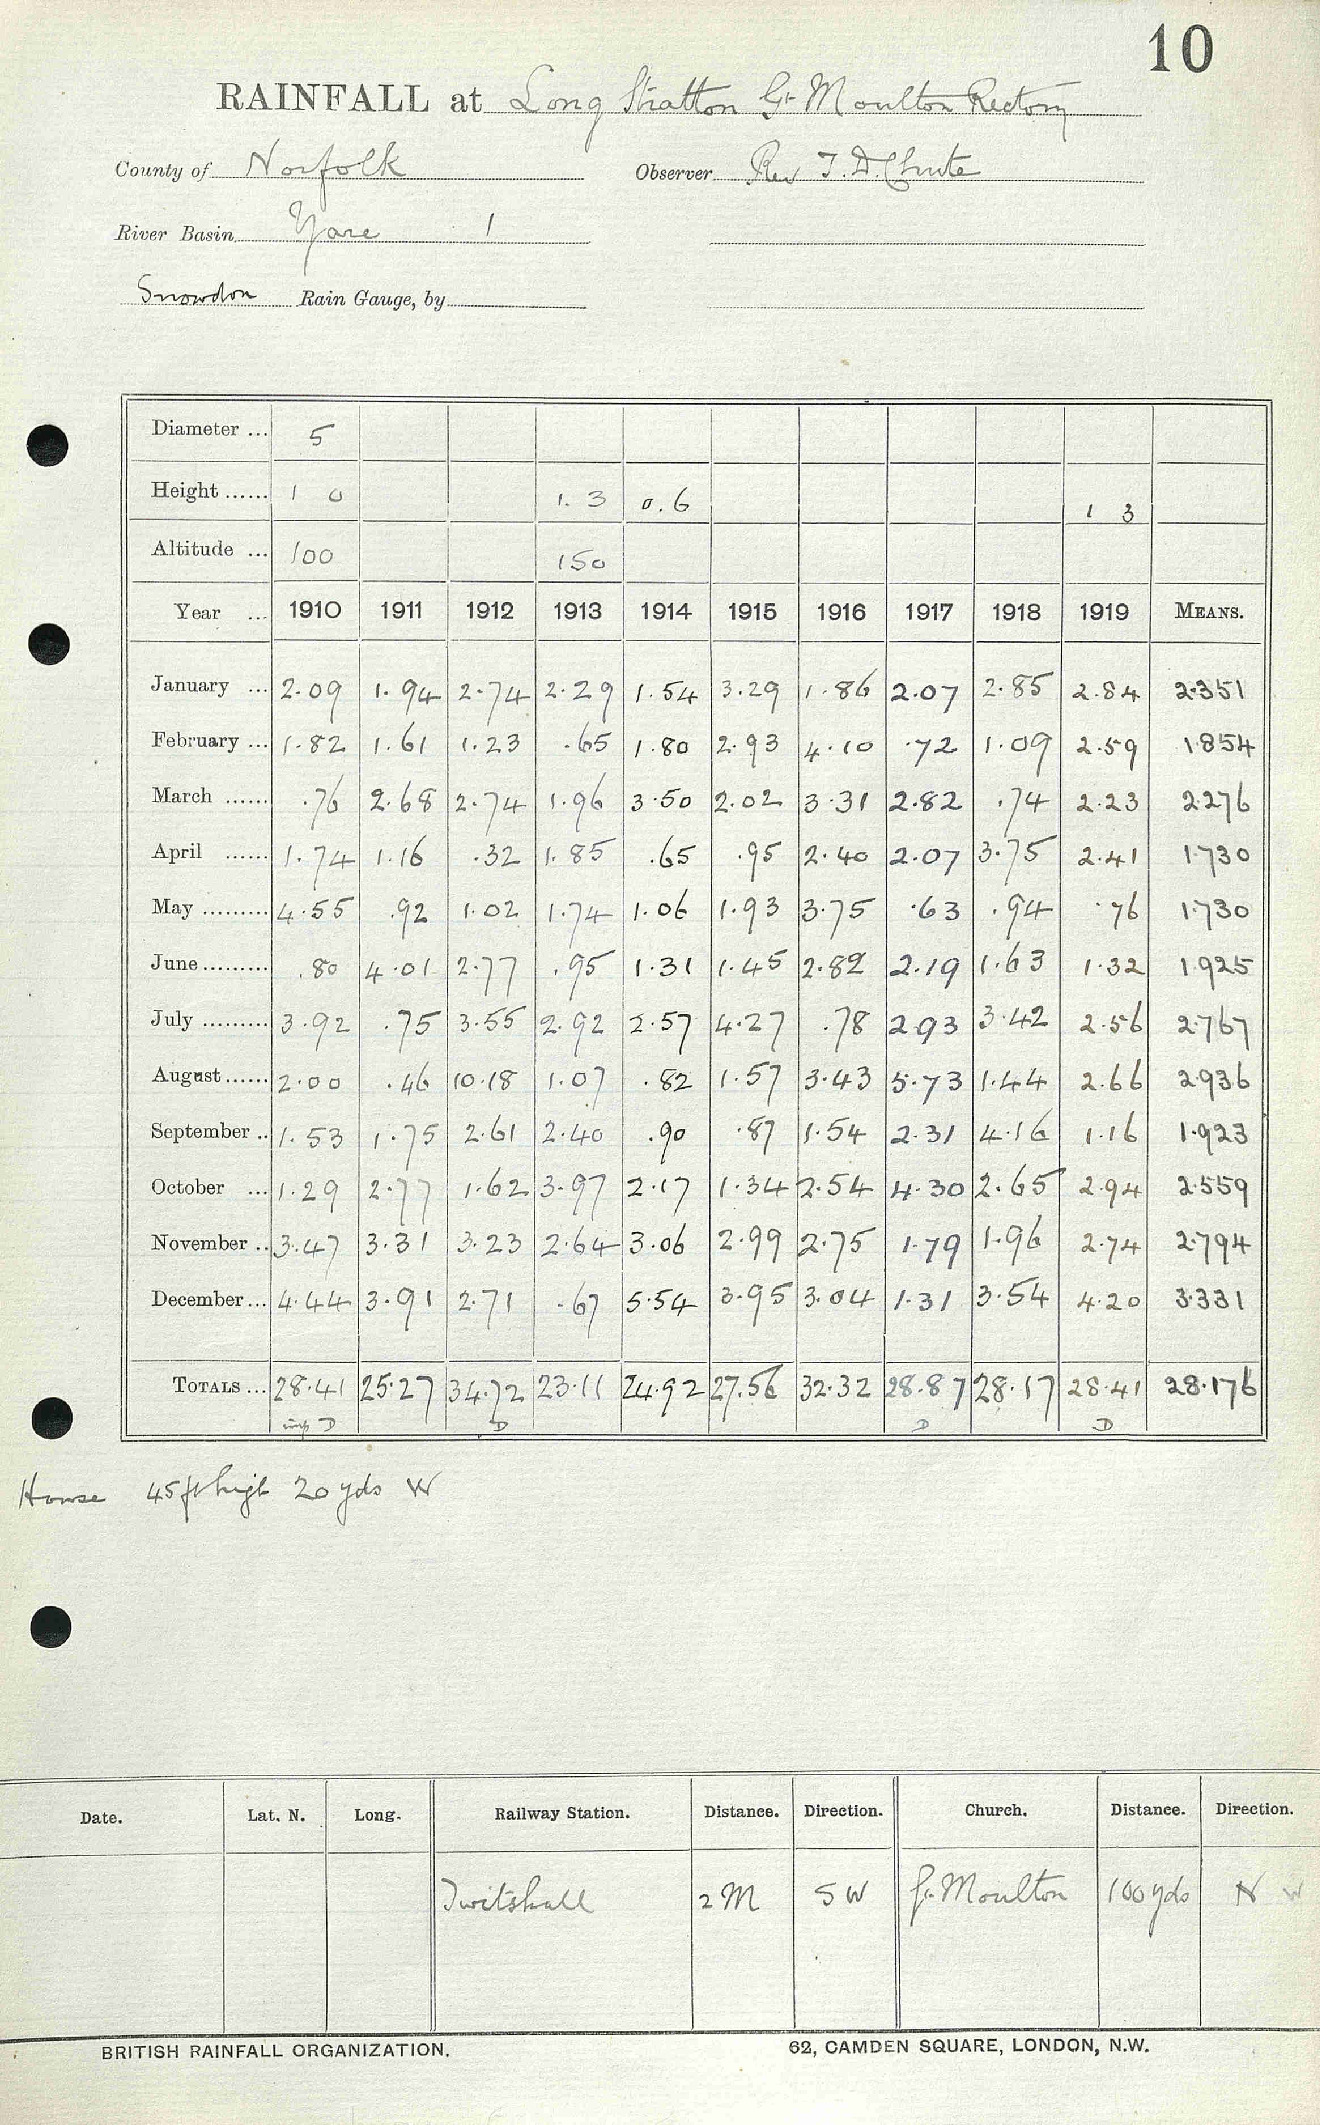 10
RAINFALL at Long Stratton Gt Moulton Rectory
County of Norfolk Observer Rev T. D. Chute
River Basin Yare 1
Snowdon Rain Gauge, by
Diameter ... 5
Height ...... 1 0 1. 3 0.6 1 3
Altitude ... 100 150
Year ... 1910 1911 1912 1913 1914 1915 1916 1917 1918 1919 MEANS.
January ... 2.09 1.94 2.74 2.29 1.54 3.29 1.86 2.07 2.85 2.84 2.351
February ... 1.82 1.61 1.23 .65 1.80 2.93 4.10 .72 1.09 2.59 1.854
March ...... .76 2.68 2.74 1.96 3.50 2.02 3.31 2.82 .74 2.23 2.276
April ...... 1.74 1.16 .32 1.85 .65 .95 2.40 2.07 3.75 2.41 1.730
May ......... 4.55 .92 1.02 1.74 1.06 1.93 3.75 .63 .94 .76 1.730
June ......... .80 4.01 2.77 .95 1.31 1.45 2.82 2.19 1.63 1.32 1.925
July ......... 3.92 .75 3.55 2.92 2.57 4.27 .78 2.93 3.42 2.56 2.767
August ...... 2.00 .46 10.18 1.07 .82 1.57 3.43 5.73 1.44 2.66 2.936
September .. 1.53 1.75 2.61 2.40 .90 .87 1.54 2.31 4.16 1.16 1.923
October ... 1.29 2.77 1.62 3.97 2.17 1.34 2.54 4.30 2.65 2.94 2.559
November .. 3.47 3.31 3.23 2.64 3.06 2.99 2.75 1.79 1.96 2.74 2.794
December ... 4.44 3.91 2.71 .67 5.54 3.95 3.04 1.31 3.54 4.20 3.331
TOTALS ... 28.41 25.27 34.72 23.11 24.92 27.56 32.32 28.87 28.17 28.41 28.176
D D D D
House 45 ft high 20 yds W
Date. Lat. N. Long. Railway Station. Distance. Direction. Church. Distance. Direction.
Tivitshall 2 M S W Gt Moulton 100 yds N W
BRITISH RAINFALL ORGANIZATION. 62, CAMDEN SQUARE, LONDON, N.W.